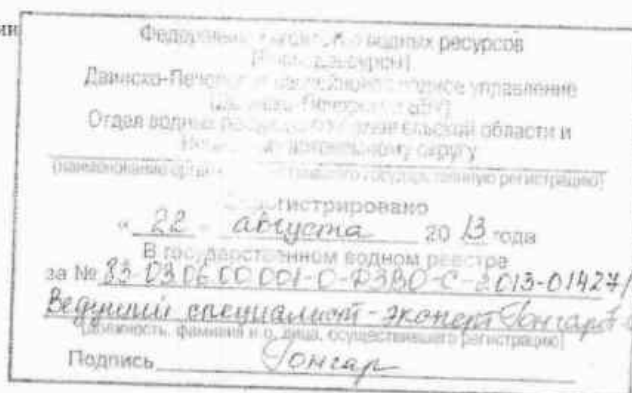 Федеральное агентство водных ресурсов
Двинско-Печорское бассейновое водное управление
Отдел водных ресурсов по Архангельской области и
Ненецкому автономному округу
Зарегистрировано
« 22 » августа 2013 года
В государственном водном реестре
за № 83-03.06.00.001-О-ДЗВО-С-2013-01427/
Ведущий специалист-эксперт Гончар
[должность, фамилия и.о. лица, осуществившего регистрацию]
Подпись Гончар